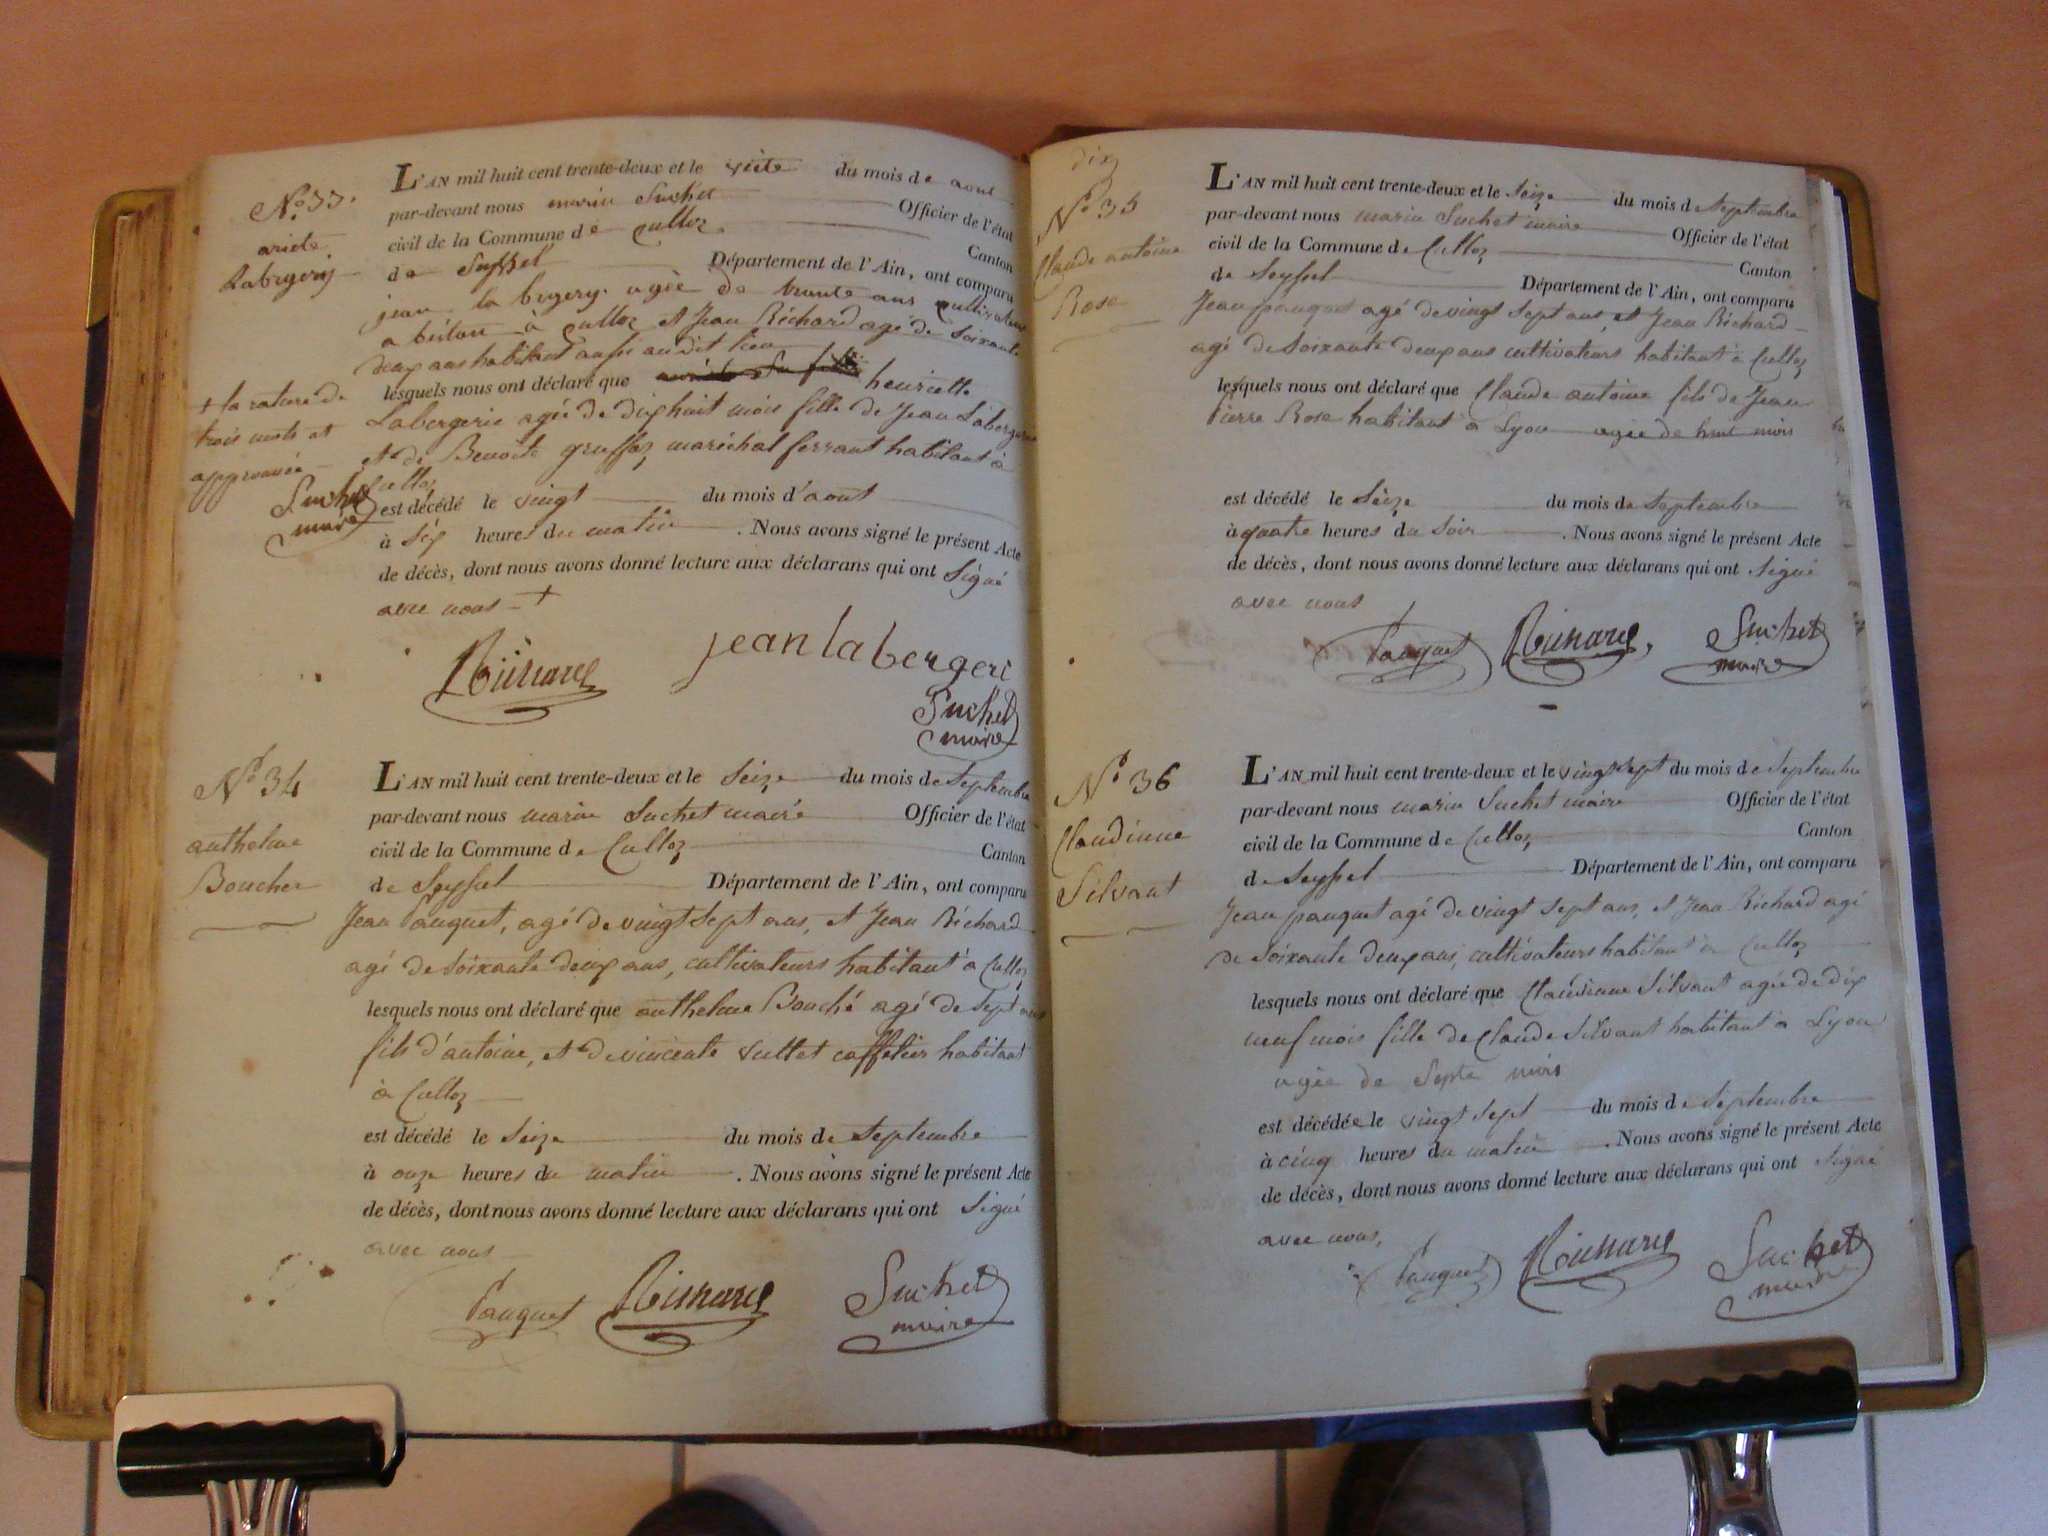 N° 33.
ariete
Labergerie
L'AN mil huit cent trente-deux et le du mois de aout
par-devant nous marin Suchet Officier de l'état
civil de la Commune de Culloz Canton
de Seyssel Département de l'Ain, ont comparu
jean la bergery agée de trante ans cultivateur
abitan à culloz et Jean Richard agé de soixante
deux ans habitant aussi au dit lieu
lesquels nous ont déclaré que henriette
Labergerie agée de dix huit mois fille de Jean Labergerie
et de Benoite gruffoz, maréchal ferrant habitant à
Culloz
est décédé le vingt du mois d'aout
à six heures du matin . Nous avons signé le présent Acte
de décès, dont nous avons donné lecture aux déclarans qui ont signé
avec nous +
+ la rature de
trois mots est
approuvée
Suchet
maire
Richard
jean la bergeri
Suchet
maire
N° 34
anthelme
Boucher
L'AN mil huit cent trente-deux et le seize du mois de Septembre
par-devant nous marin Suchet maire Officier de l'état
civil de la Commune de Culloz Canton
de Seyssel Département de l'Ain, ont comparu
Jean Pauquet, agé de vingt sept ans, et Jean Richard
agé de soixante deux ans, cultivateurs habitant à Culloz
lesquels nous ont déclaré que anthelme Bouché agé de sept ans
fils d'antoine, et de vincente vullet caffetier habitant
à Culloz
est décédé le seize du mois de septembre
à onze heures du matin . Nous avons signé le présent Acte
de décès, dont nous avons donné lecture aux déclarans qui ont signé
avec nous
Pauquet Richard Suchet
maire
dix
N° 35
Claude antoine
Rose
L'AN mil huit cent trente-deux et le seize du mois de Septembre
par-devant nous marin Suchet maire Officier de l'état
civil de la Commune de Culloz Canton
de Seyssel Département de l'Ain, ont comparu
Jean pauquet agé de vingt sept ans, et Jean Richard
agé de soixante deux ans cultivateurs habitant à Culloz
lesquels nous ont déclaré que Claude antoine fils de Jean
Pierre Rose habitant à Lyon agée de huit mois
est décédé le seize du mois de septembre
à quatre heures du soir . Nous avons signé le présent Acte
de décès, dont nous avons donné lecture aux déclarans qui ont signé
avec nous
Pauquet Richard, Suchet
maire
N° 36
Claudinne
Silvant
L'AN mil huit cent trente-deux et le vingt sept du mois de Septembre
par-devant nous marin Suchet maire Officier de l'état
civil de la Commune de Culloz Canton
de Seyssel Département de l'Ain, ont comparu
Jean pauquet agé de vingt sept ans, et Jean Richard agé
de soixante deux ans, cultivateurs habitant à Culloz
lesquels nous ont déclaré que Claudinne Silvant agée de dix
neuf mois fille de Claude Silvant habitant à Lyon
agée de septe mois
est décédée le vingt sept du mois de septembre
à cinq heures du matin . Nous avons signé le présent Acte
de décès, dont nous avons donné lecture aux déclarans qui ont signé
avec nous,
Pauquet Richard Suchet
maire